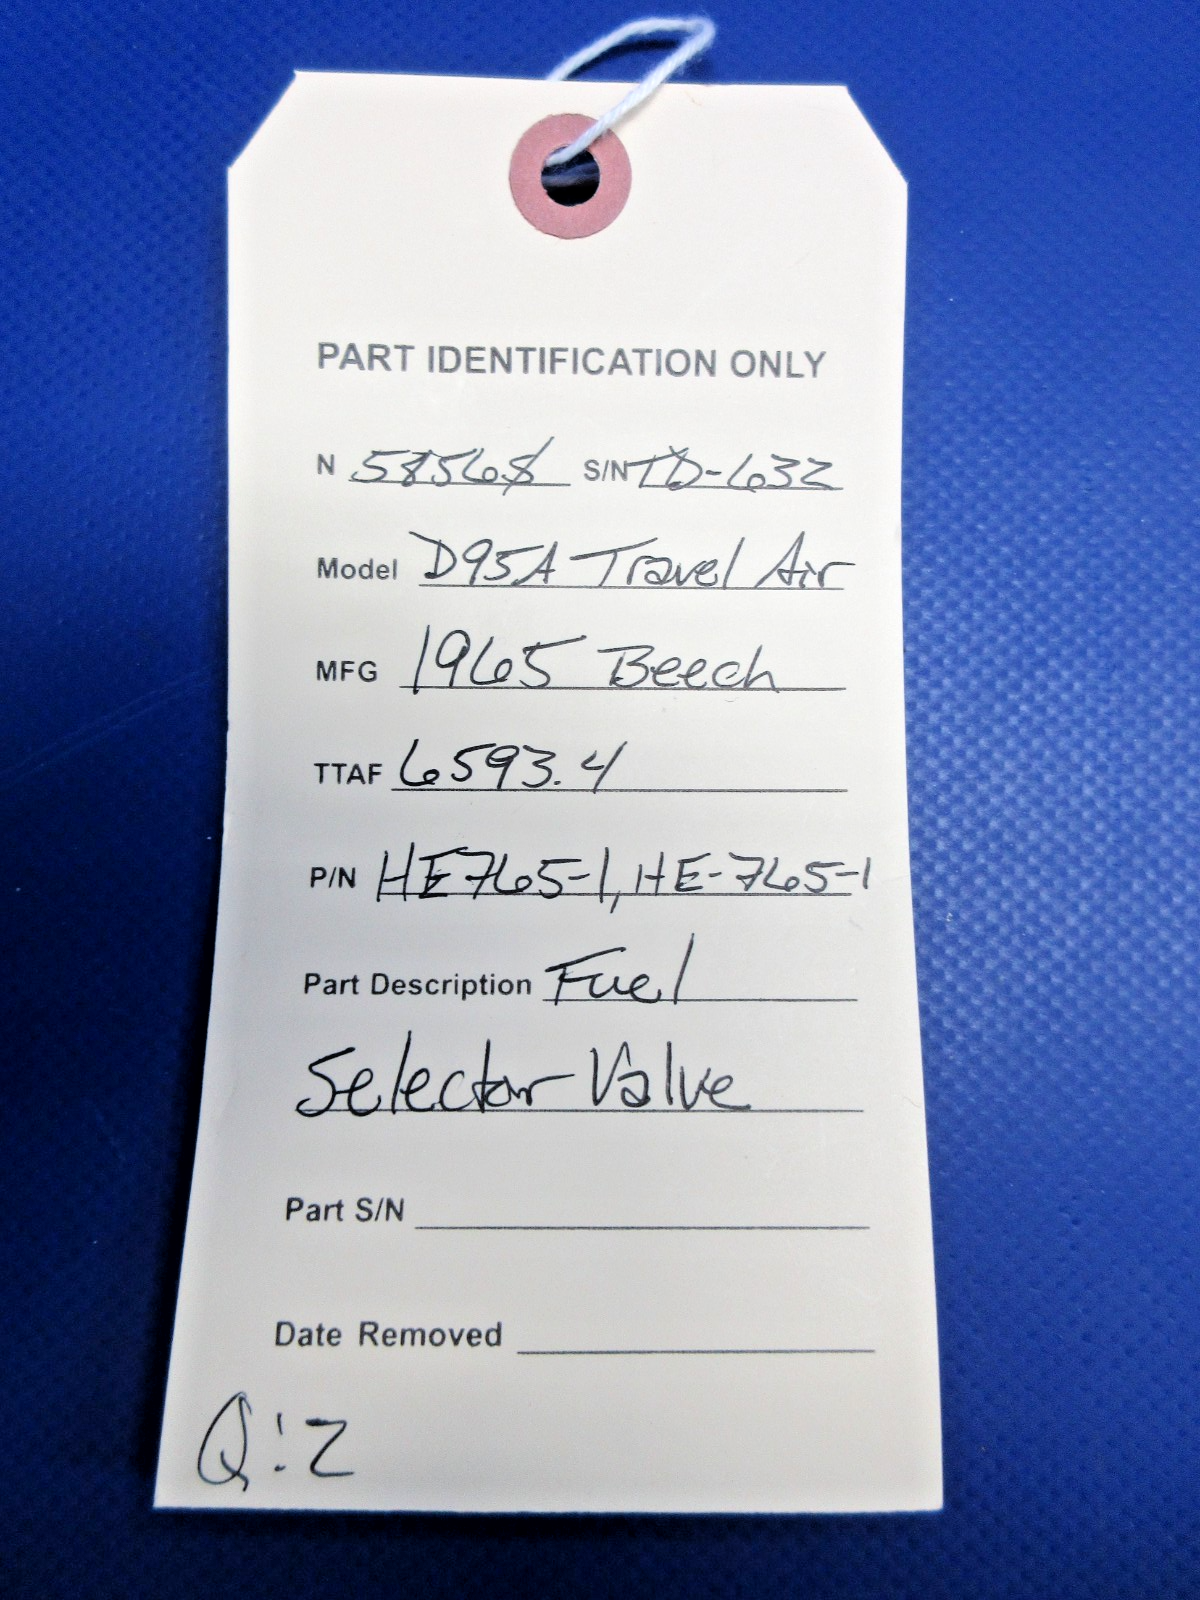 PART IDENTIFICATION ONLY
N 5856S S/N TD-632
Model D95A Travel Air
MFG 1965 Beech
TTAF 6593.4
P/N HE765-1, HE-765-1
Part Description Fuel
Selector Valve
Part S/N
Date Removed
Q:2